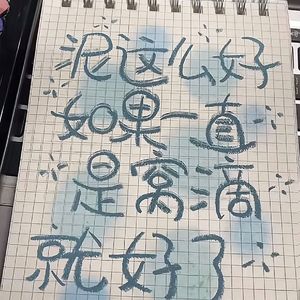 泥这么好
如果一直
是窝滴
就好了